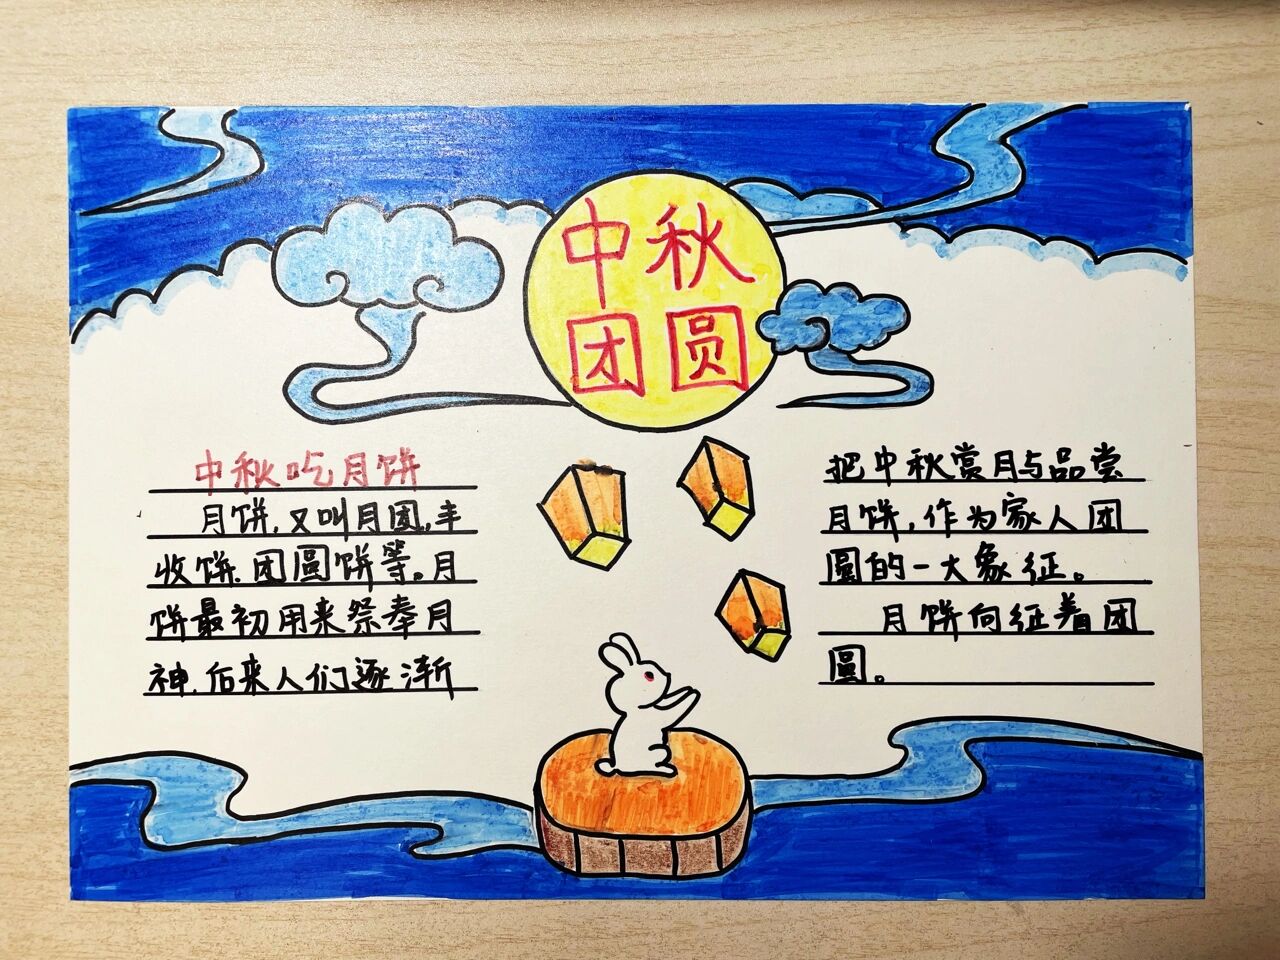 中秋
团圆
中秋吃月饼
月饼,又叫月团,丰
收饼.团圆饼等。月
饼最初用来祭奉月
神.后来人们逐渐
把中秋赏月与品尝
月饼,作为家人团
圆的一大象征。
月饼向征着团
圆。